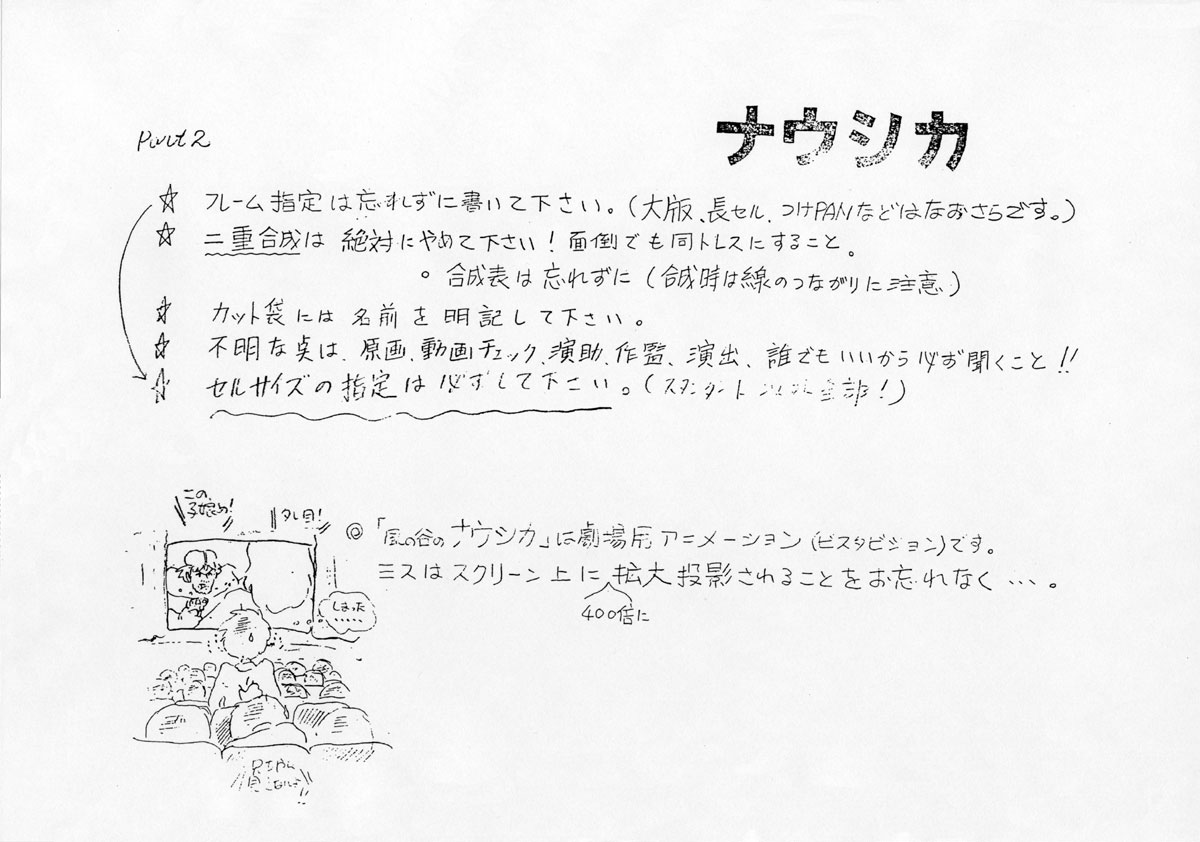 Part 2
ナウシカ
☆ フレーム指定は忘れずに書いて下さい。(大版、長セル、つけPANなどはなおさらです。)
☆ 二重合成は絶対にやめて下さい!面倒でも同トレスにすること。
○ 合成表は忘れずに(合成時は線のつながりに注意)
☆ カット袋には名前を明記して下さい。
☆ 不明な点は、原画、動画チェック、演助、作監、演出、誰でもいいから必ず聞くこと!!
☆ セルサイズの指定は必ずして下さい。(スタンダード 全部!)
この、
子娘め!
タレ目!
しまった
・・・・・
◎「風の谷のナウシカ」は劇場用アニメーション(ビスタビジョン)です。
ミスはスクリーン上に拡大投影されることをお忘れなく…。
400倍に